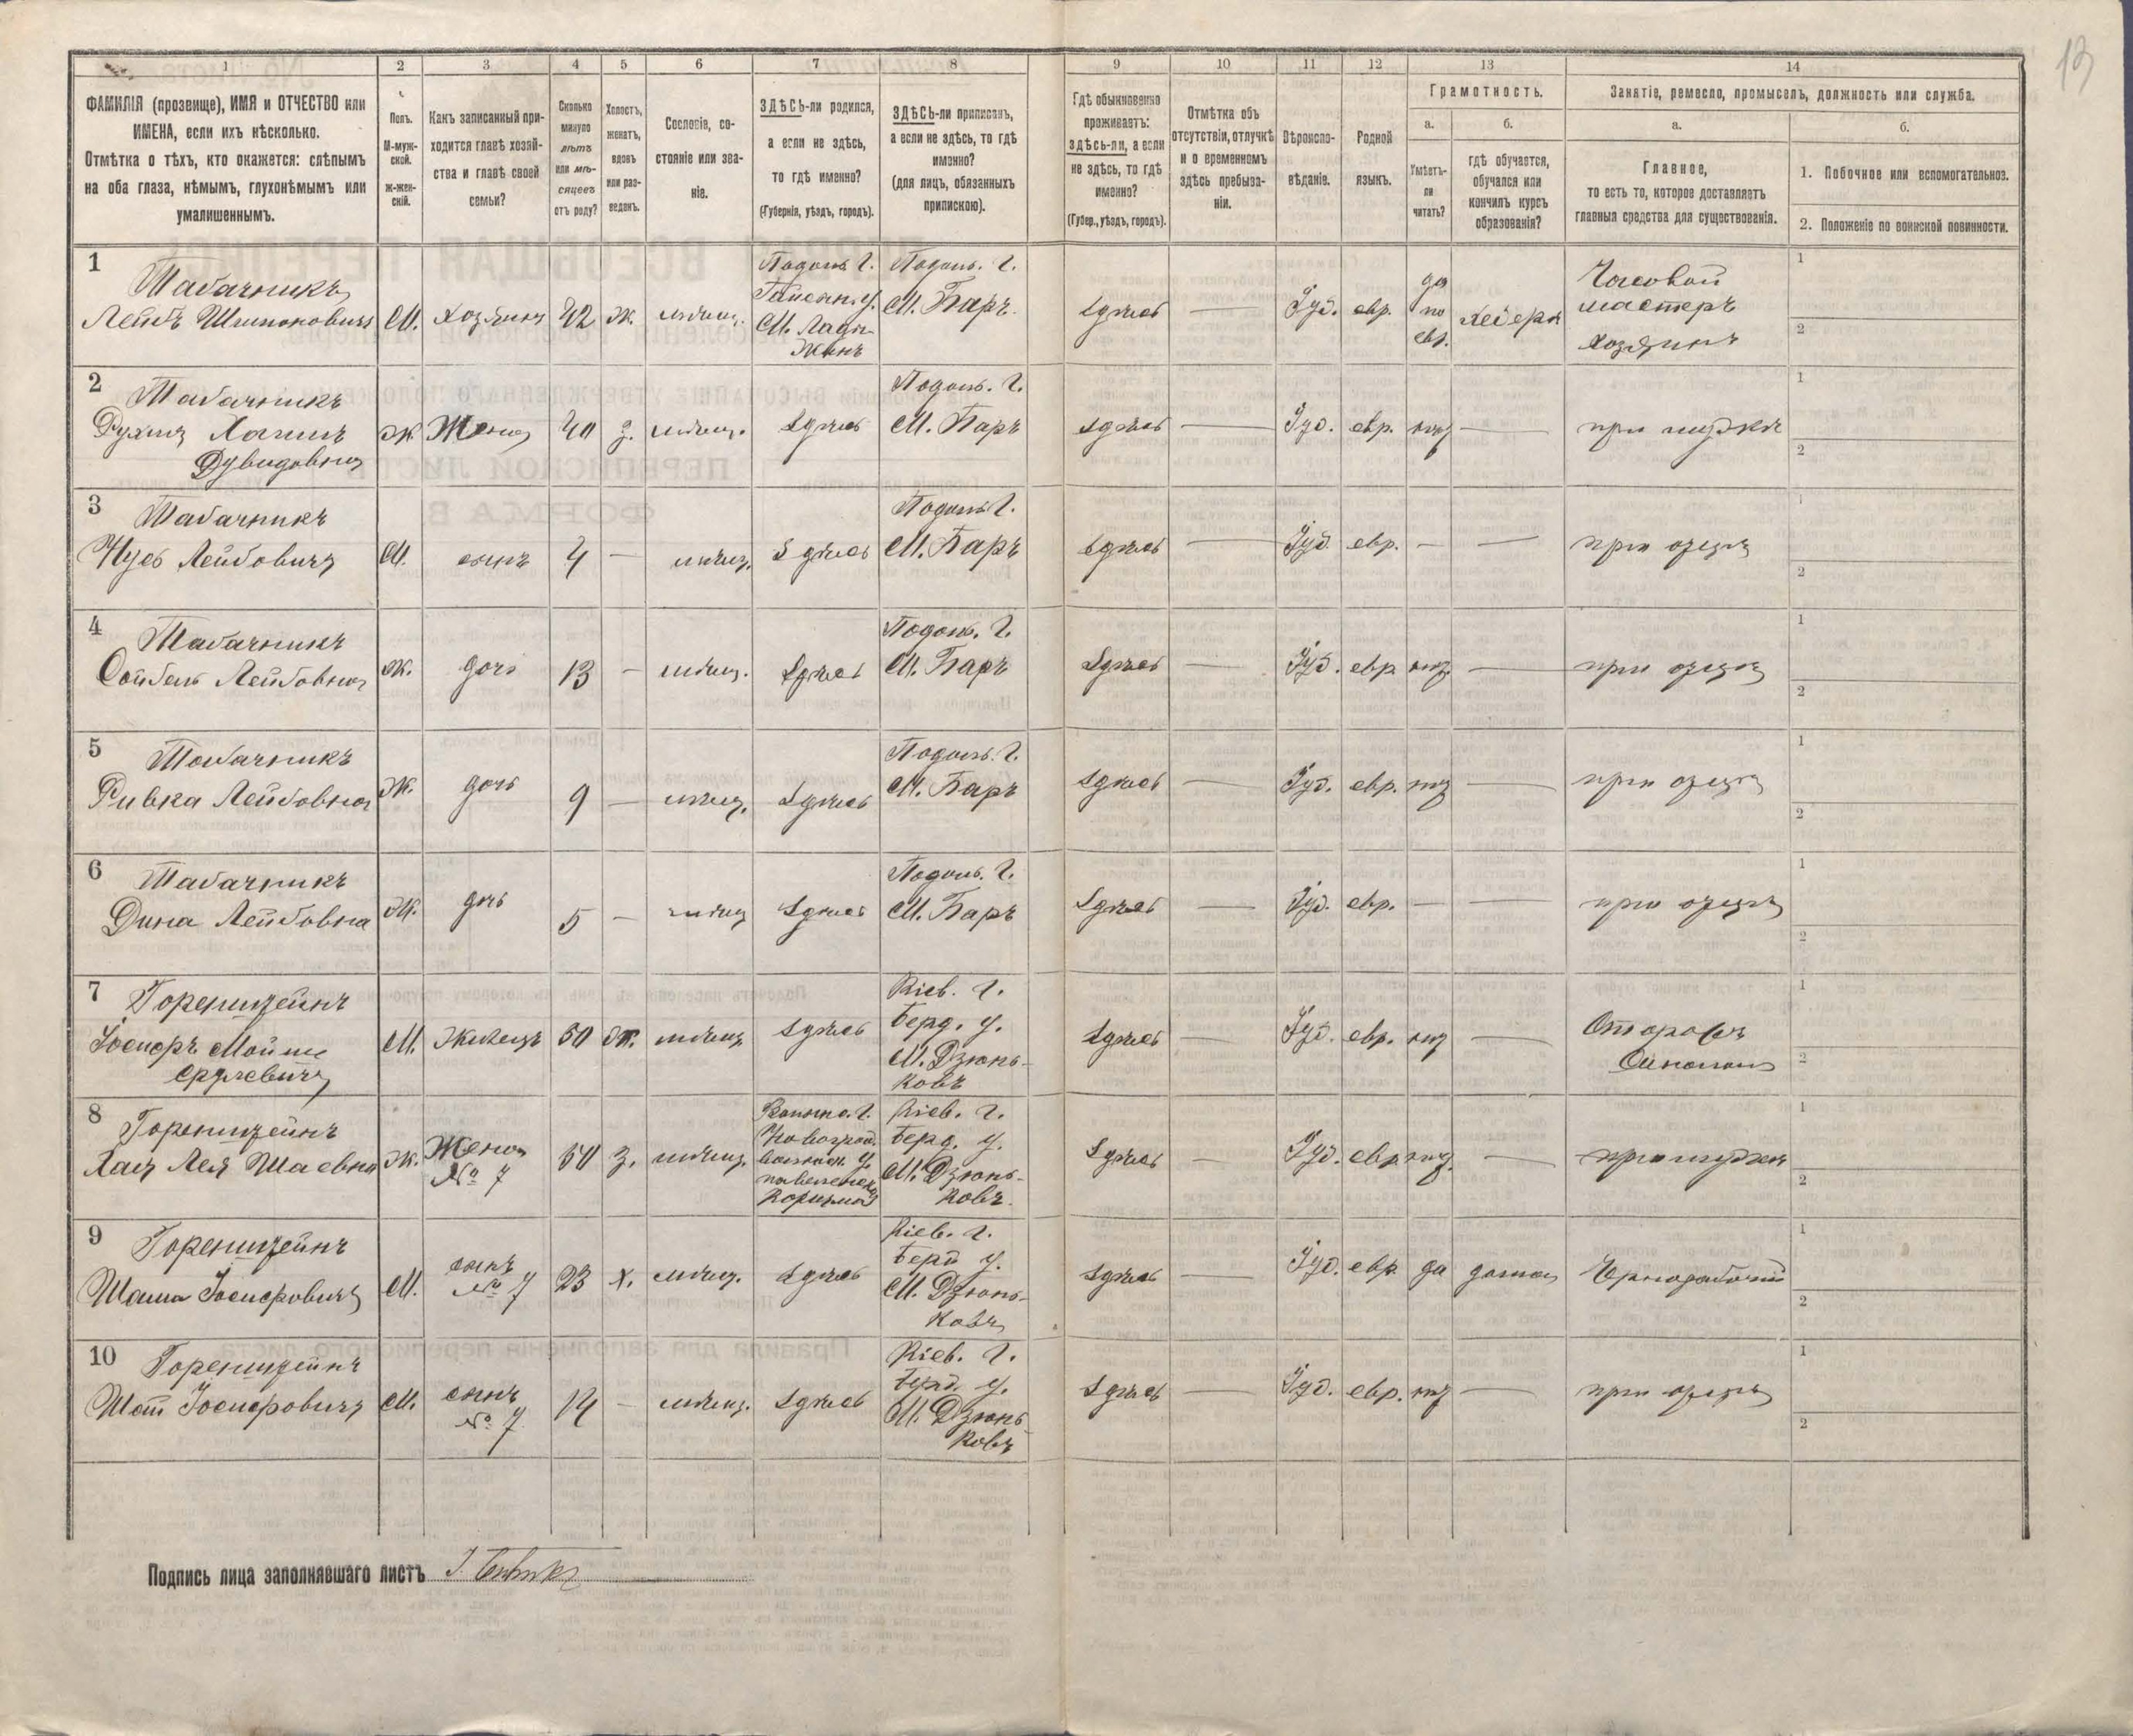 13
1 2 3 4 5 6 7 8 9 10 11 12 13 14
ФАМИЛІЯ (прозвище), ИМЯ и ОТЧЕСТВО или
ИМЕНА, если ихъ нѣсколько.
Отмѣтка о тѣхъ, кто окажется: слѣпымъ
на оба глаза, нѣмымъ, глухонѣмымъ или
умалишеннымъ.
Полъ.
М-муж-
ской.
ж-жен-
скій.
Какъ записанный при-
ходится главѣ хозяй-
ства и главѣ своей
семьи?
Сколько
минуло
лѣтъ
или мѣ-
сяцевъ
отъ роду?
Холостъ,
женатъ,
вдовъ
или раз-
веденъ.
Сословіе, со-
стояніе или зва-
ніе.
ЗДѢСЬ-ли родился,
а если не здѣсь,
то гдѣ именно?
(Губернія, уѣздъ, городъ).
ЗДѢСЬ-ли приписанъ,
а если не здѣсь, то гдѣ
именно?
(для лицъ, обязанныхъ
припискою).
Гдѣ обыкновенно
проживаетъ:
здѣсь-ли, а если
не здѣсь, то гдѣ
именно?
(Губер., уѣздъ, городъ).
Отмѣтка объ
отсутствіи, отлучкѣ
и о временномъ
здѣсь пребыва-
ніи.
Вѣроиспо-
вѣданіе.
Родной
языкъ.
Грамотность.
а.
Умѣетъ-
ли
читать?
б.
гдѣ обучается,
обучался или
кончилъ курсъ
образованія?
Занятіе, ремесло, промыселъ, должность или служба.
а.
Главное,
то есть то, которое доставляетъ
главныя средства для существованія.
б.
1. Побочное или вспомогательное.
2. Положеніе по воинской повинности.
1 Табачникъ
Лейбъ Шимоновичъ
М. хозяинъ 42 ж. мѣщан.
Подоль. Г.
Гайсин. у.
М. Лады-
жинъ
Подоль. Г.
М. Баръ
здѣсь — Іуд. евр.
да
по
евр.
хедеръ
Часовой
мастеръ
хозяинъ
1
2
2 Табачникъ
Давидовна
ж. Жена 40 з. мѣщан. здѣсь
Подоль. Г.
М. Баръ
здѣсь — Іуд. евр. нѣт — при мужѣ
1
2
3 Табачникъ
Нусь Лейбовичъ
М. сынъ 4 — мѣщ. здѣсь
Подоль Г.
М. Баръ
здѣсь — Іуд. евр. — — при отцѣ
1
2
4 Табачникъ
Лейбовна
ж. дочь 13 — мѣщ. здѣсь
Подоль. Г.
М. Баръ
здѣсь — Іуд. евр. нѣт — при отцѣ
1
2
5 Табачникъ
Ривка Лейбовна
ж. дочь 9 — мѣщ. здѣсь
Подоль. Г.
М. Баръ
здѣсь — Іуд. евр. нѣт — при отцѣ
1
2
6 Табачникъ
Дина Лейбовна
ж. дочь 5 — мѣщ здѣсь
Подоль. Г.
М. Баръ
здѣсь — Іуд. евр. — — при отцѣ
1
2
7 Горенштейнъ
Іосифъ Мойше
Срулевичъ
М. Жилецъ 50 ж. мѣщан. здѣсь
Кіев. Г.
Берд. у.
М. Дзюнь-
ковъ
здѣсь — Іуд. евр. нѣт —
Сторожъ
1
2
8 Горенштейнъ
Хая Лея Шаевна
ж. Жена
№ 7
50 з. мѣщан.
Волынс. Г.
Новоград.
волынск. у.
Кіев. Г.
Берд. у.
М. Дзюнь-
ковъ.
здѣсь — Іуд. евр. нѣт. — при мужѣ
1
2
9 Горенштейнъ
Іосифовичъ
М. сынъ
№ 7
23 х. мѣщ. здѣсь
Кіев. Г.
Берд у.
М. Дзюнь-
ковъ
здѣсь — Іуд. евр. да дома Чернорабочій
1
2
10 Горенштейнъ
Іосифовичъ
М. сынъ
№ 7
14 — мѣщ. здѣсь
Кіев. Г.
Берд. у.
М. Дзюнь-
ковъ
здѣсь — Іуд. евр. нѣт — при отцѣ
1
2
Подпись лица заполнявшаго листъ